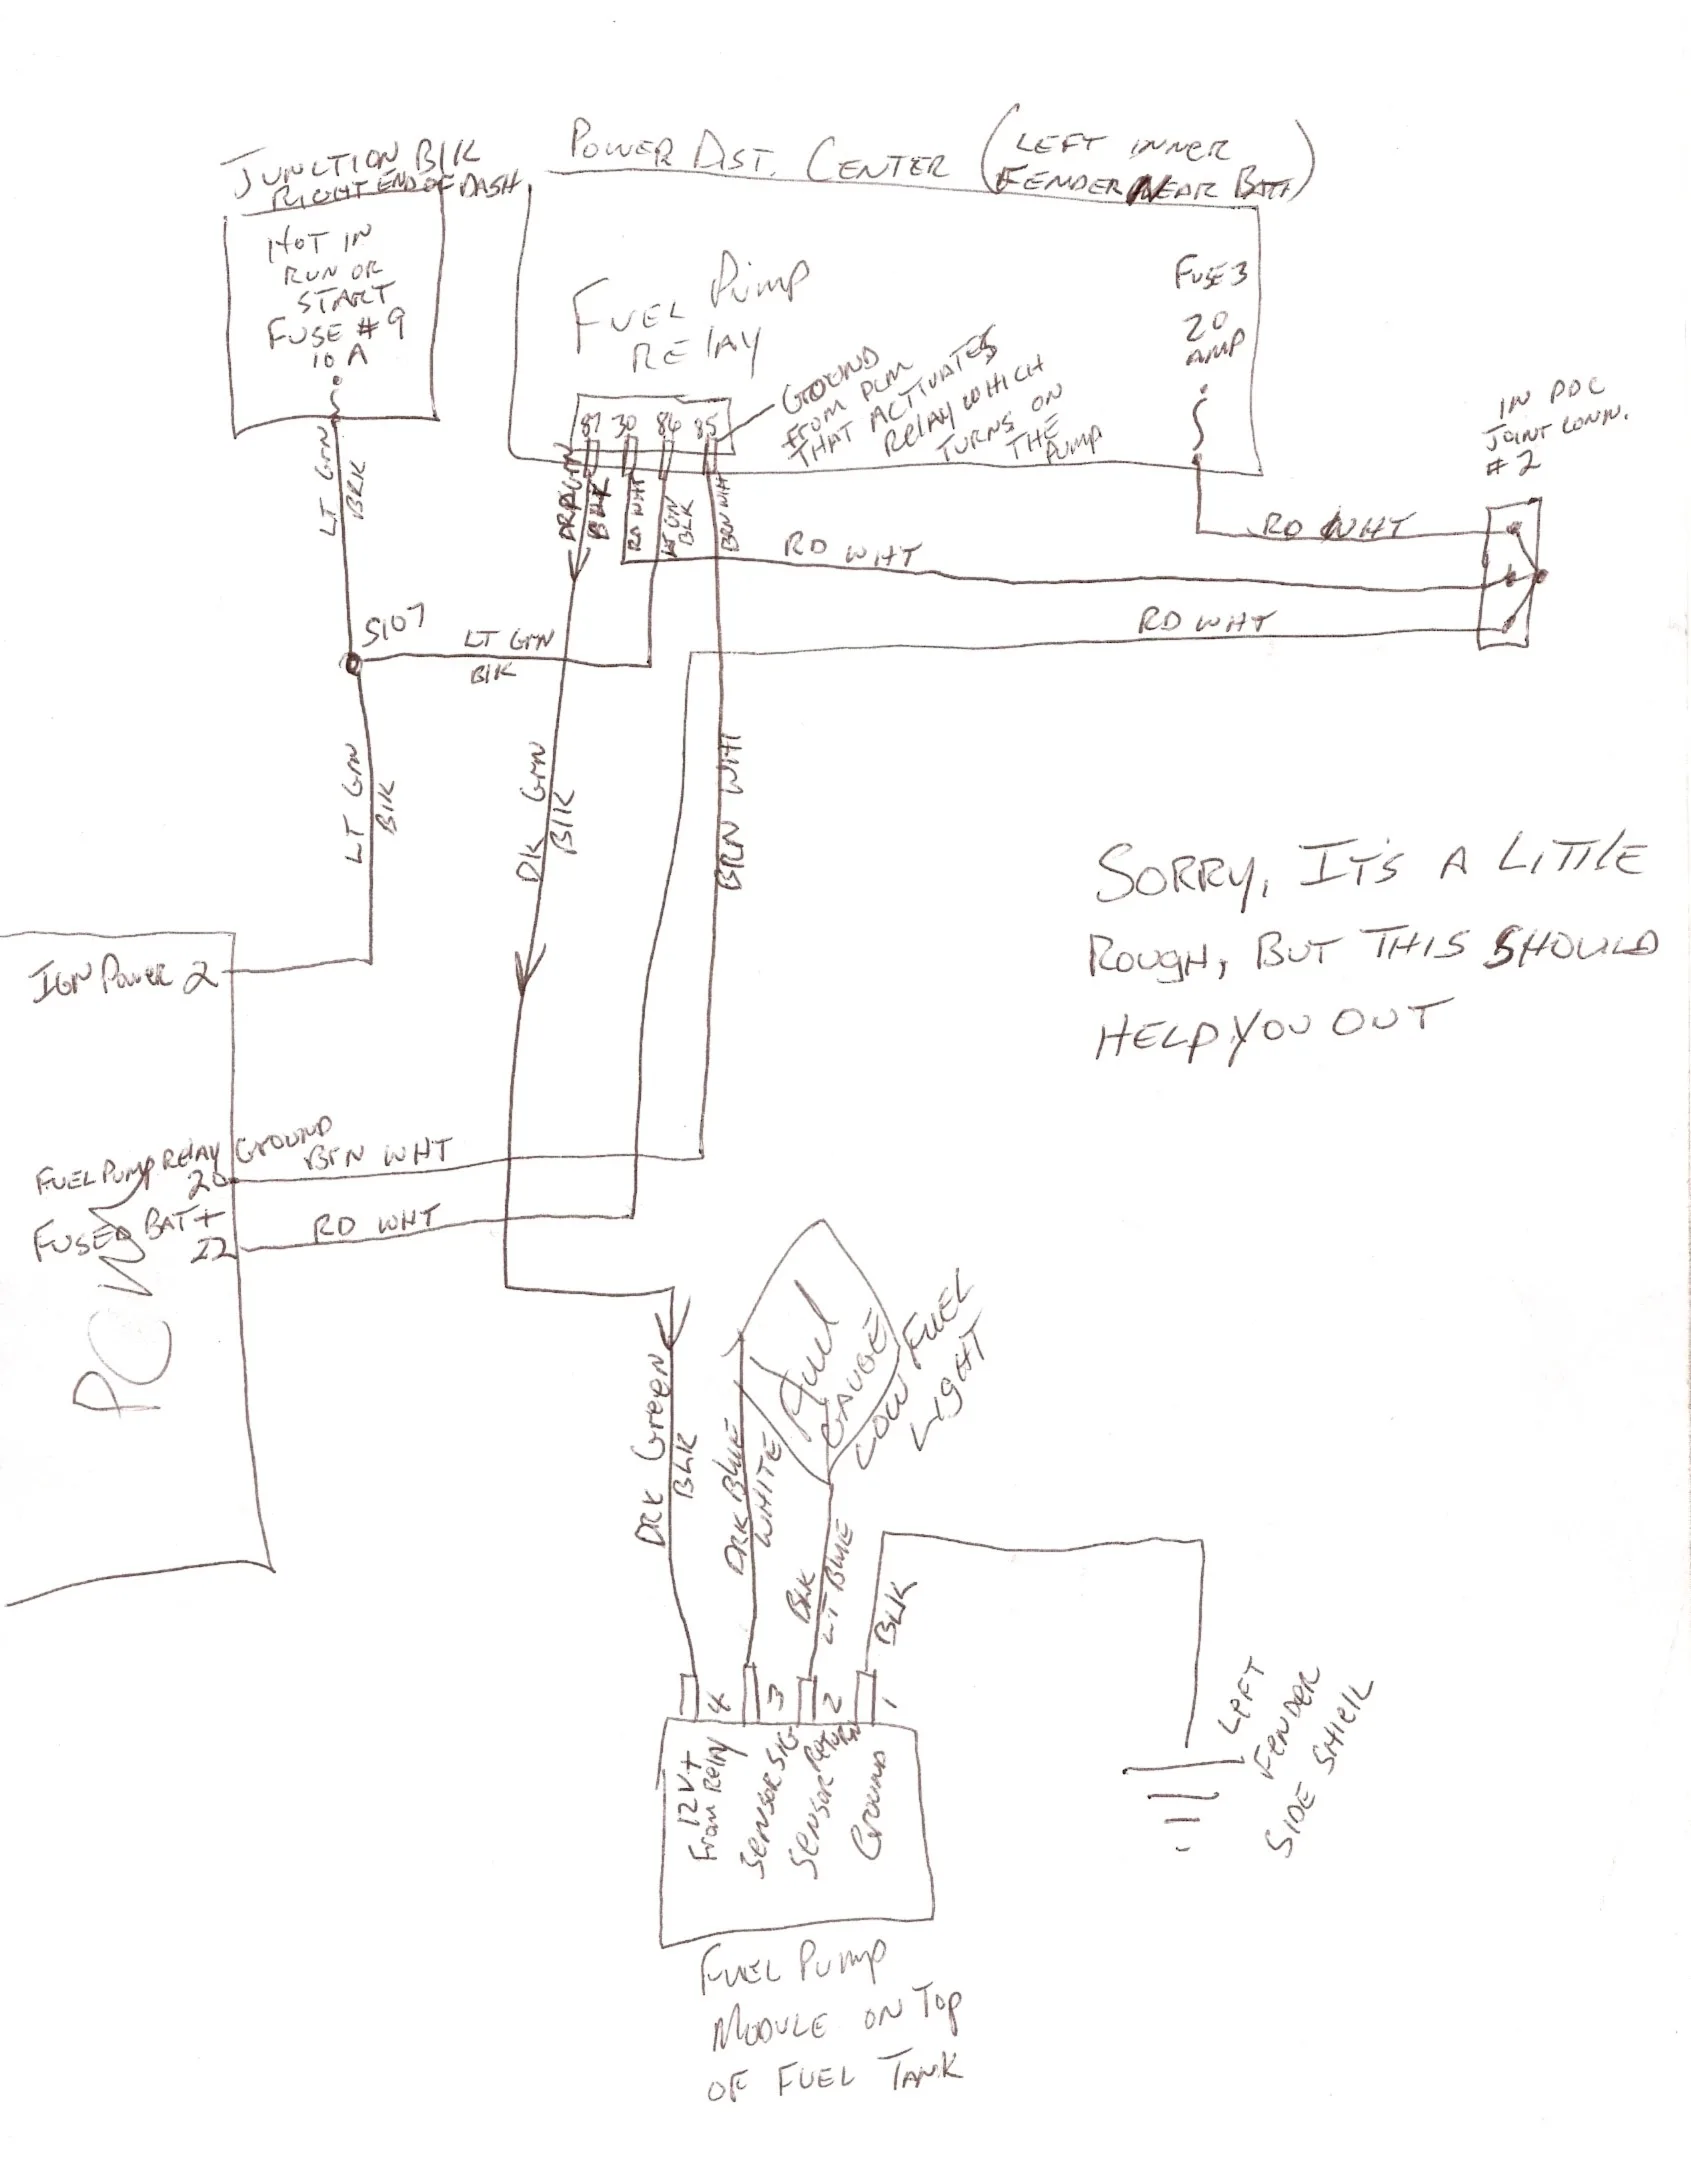 JUNCTION BlK
RIGHT END OF DASH
POWER DIST. CENTER (LEFT INNER
FENDER NEAR BATT)
HOT IN
RUN OR
START
FUSE #9
10 A
FUEL PUMP
RELAY
FUSE 3
20
AMP
GROUND
FROM PCM
THAT ACTIVATES
RELAY WHICH
TURNS ON
THE
PUMP
IN PDC
JOINT CONN.
#2
87 30 86 85
LT GRN
BRK
BLK
RD WHT
LT GRN
BLK
BRN WHT
RD WHT
RD WHT
RD WHT
S107
LT GRN
BlK
LT GRN
BlK
DK GRN
BlK
BRN WHT
SORRY, IT'S A LITTlE
ROUGH, BUT THIS SHOULD
HELP YOU OUT
IGN POWER 2
FUEL PUMP RELAY GROUND
20
BRN WHT
FUSED BAT+
22
RD WHT
PCM
FUEl
GAUGE
LOW FUEL
LIGHT
DRK GREEN
BLK
DRK BlUE
WHITE
BLK
LT BlUE
BLK
4 3 2 1
12V+
From Relay
SENSOR SIG
SENSOR RETURN
GROUND
LEFT
FENDER
SIDE SHIElL
FUEL PUMP
MODULE ON TOP
OF FUEL TANK